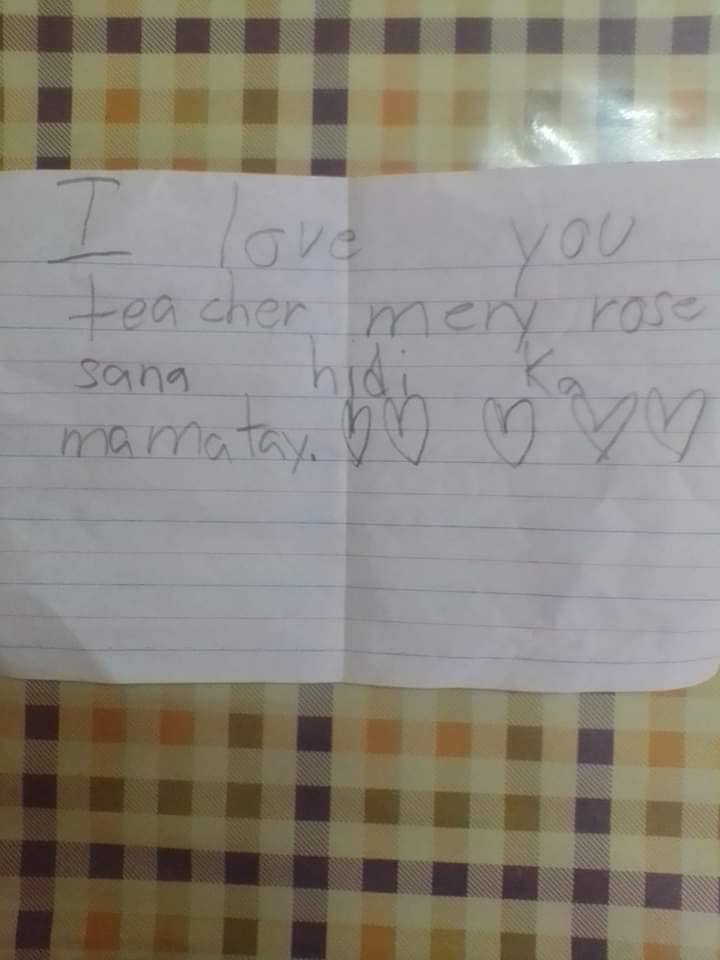 I love you
teacher mery rose
sana hidi ka
mamatay.